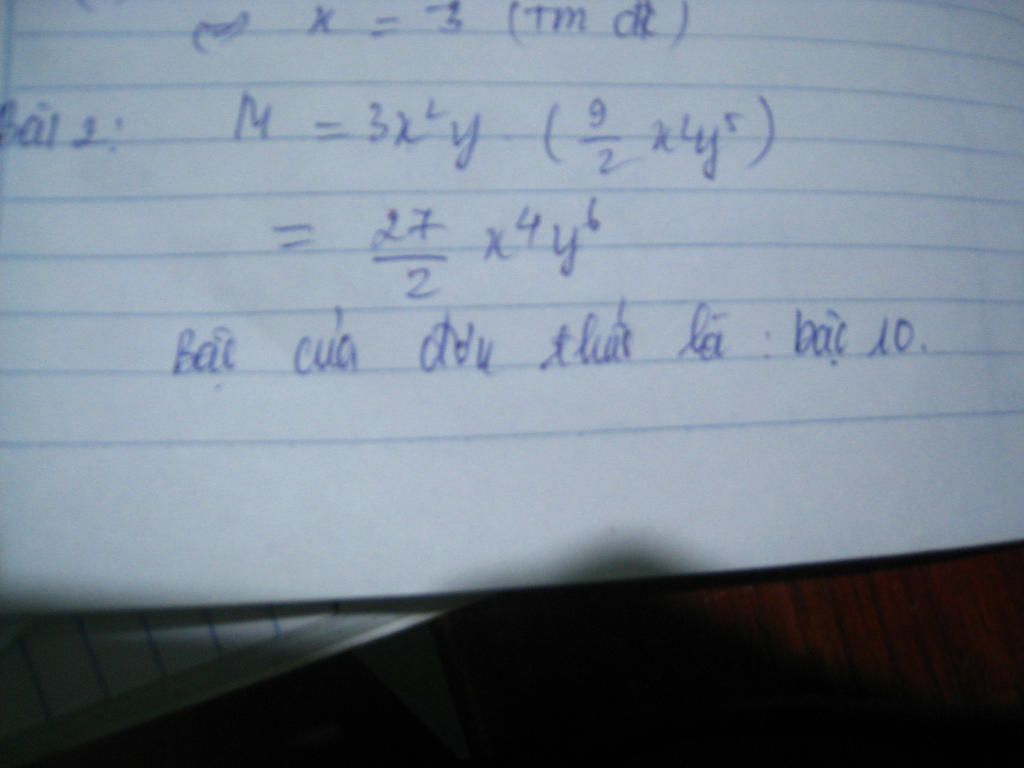 ⇔ x = 3 (Tm đk)
Bài 2: M = 3x²y . (9/2 x²y⁵)
= 27/2 x⁴y⁶
Bậc của đơn thức là : bậc 10.